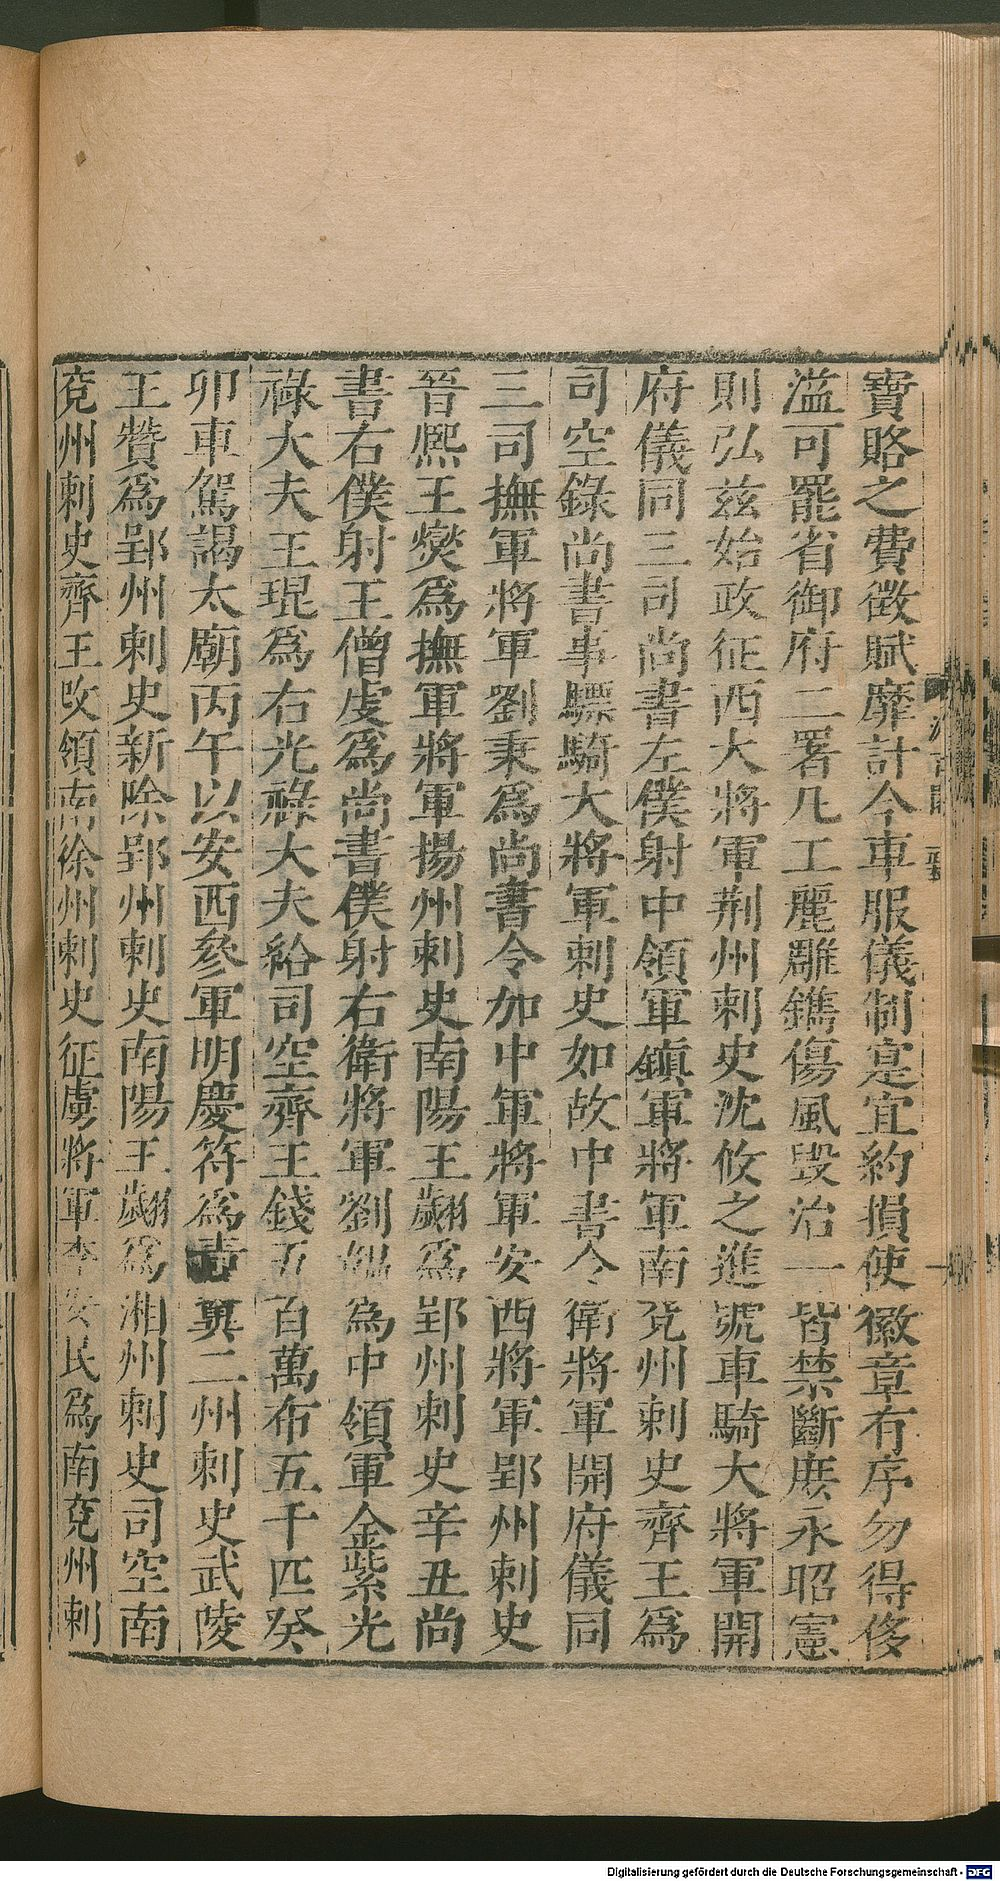 寶賂之費徵賦靡計今車服儀制寔宜約損使徽章有序勿得侈
溢可罷省御府二署凡工麗雕鐫傷風毀治一皆禁斷庶永昭憲
則弘兹始政征西大將軍荆州刺史沈攸之進號車騎大將軍開
府儀同三司尚書左僕射中領軍鎮軍將軍南兗州刺史齊王爲
司空錄尚書事驃騎大將軍刺史如故中書令衛將軍開府儀同
三司撫軍將軍劉秉爲尚書令加中軍將軍安西將軍郢州刺史
晉熙王燮爲撫軍將軍揚州刺史南陽王翽爲郢州刺史辛丑尚
書右僕射王僧虔爲尚書僕射右衛將軍劉韞爲中領軍金紫光
祿大夫王琨爲右光祿大夫給司空齊王錢五百萬布五千匹癸
卯車駕謁太廟丙午以安西參軍明慶符爲青冀二州刺史武陵
王贊爲郢州刺史新除郢州刺史南陽王翽爲湘州刺史司空南
兗州刺史齊王改領南徐州刺史征虜將軍李安民爲南兗州刺
Digitalisierung gefördert durch die Deutsche Forschungsgemeinschaft - DFG